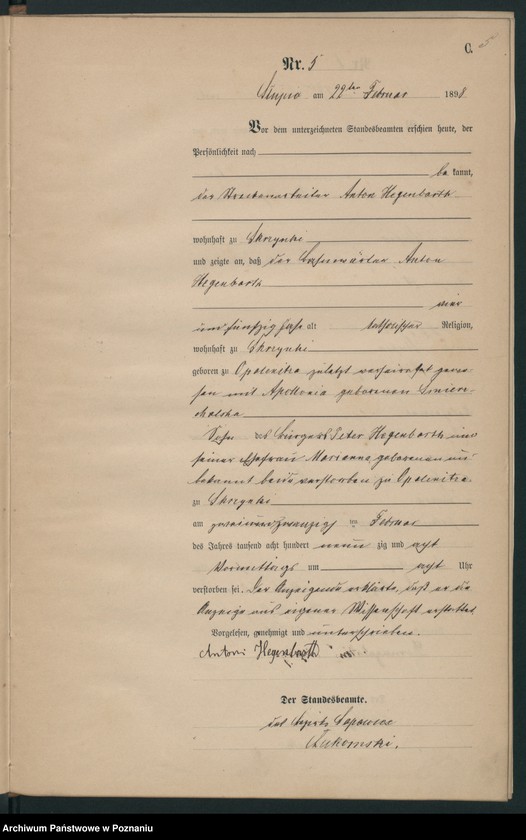 C.
Nr. 5
am 22ten Februar 1898
Vor dem unterzeichneten Standesbeamten erschien heute, der
Persönlichkeit nach
be kannt,
der Streckenarbeiter Anton Hegenbarth
wohnhaft zu Skrzynki
und zeigte an, daß der Bahnwärter Anton
Hegenbarth
vier
und fünfzig Jahre alt katholischer Religion,
wohnhaft zu Skrzynki
geboren zu Opalenitza zuletzt verheirathet gewe-
sen mit Apollonia geborenen
Sohn des Bürgers Peter Hegenbarth und
seiner Ehefrau Marianna geborenen un-
bekannt beide verstorben zu Opalenitza
zu Skrzynki
am zweiundzwanzigsten Februar
des Jahres tausend acht hundert neun zig und acht
Vormittags um acht Uhr
verstorben sei. Der Anzeigende erklärte, daß er die
Anzeige aus eigener Wissenschaft erstattet.
Vorgelesen, genehmigt und unterschrieben.
Antoni Hegenbarth
Der Standesbeamte.
Archiwum Państwowe w Poznaniu